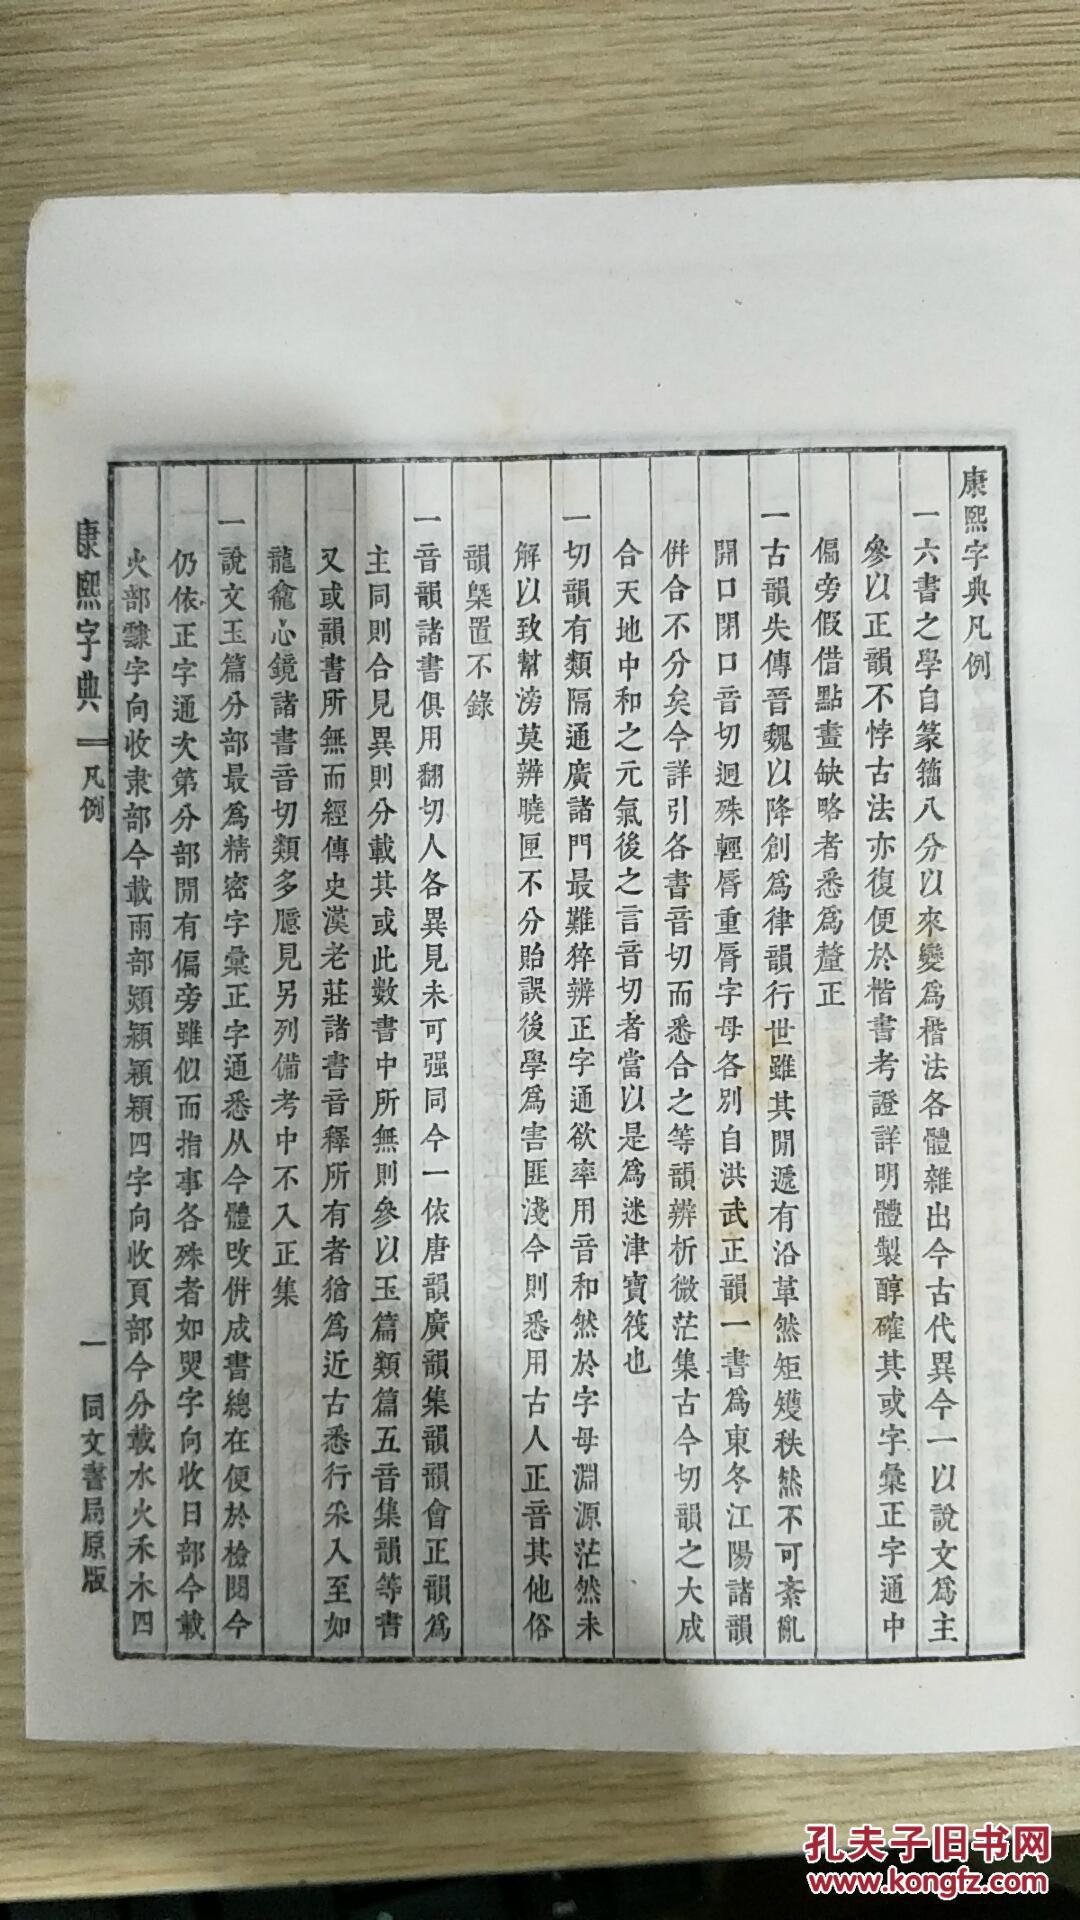 康熙字典凡例
一六書之學自篆籀八分以來變爲楷法各體雜出今古代異今一以說文爲主
參以正韻不悖古法亦復便於楷書考證詳明體製醇確其或字彙正字通中
偏旁假借點畫缺略者悉爲釐正
一古韻失傳晉魏以降創爲律韻行世雖其閒遞有沿革然矩矱秩然不可紊亂
開口閉口音切迥殊輕脣重脣字母各別自洪武正韻一書爲東冬江陽諸韻
併合不分矣今詳引各書音切而悉合之等韻辨析微茫集古今切韻之大成
合天地中和之元氣後之言音切者當以是爲迷津寶筏也
一切韻有類隔通廣諸門最難猝辨正字通欲率用音和然於字母淵源茫然未
解以致幫滂莫辨曉匣不分貽誤後學爲害匪淺今則悉用古人正音其他俗
韻槩置不錄
一音韻諸書俱用翻切人各異見未可强同今一依唐韻廣韻集韻韻會正韻爲
主同則合見異則分載其或此數書中所無則參以玉篇類篇五音集韻等書
又或韻書所無而經傳史漢老莊諸書音釋所有者猶爲近古悉行采入至如
龍龕心鏡諸書音切類多臆見另列備考中不入正集
一說文玉篇分部最爲精密字彙正字通悉从今體改併成書總在便於檢閱今
仍依正字通次第分部閒有偏旁雖似而指事各殊者如炅字向收日部今載
火部霴字向收隶部今載雨部熲潁穎頴四字向收頁部今分載水火禾木四
康熙字典 凡例 一 同文書局原版
孔夫子旧书网
www.kongfz.com